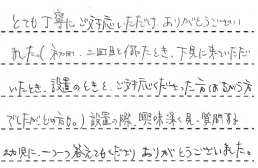 とても丁寧にご対応いただけ、ありがとうござい
ました。(初回、二回目と伺ったとき、下見に来ていただ
いたとき、設置のときと、ご対応くださった方はちがう方
でしたがどの方も。)設置の際、興味深く見、質問する
幼児に、一つ一つ答えてもくださり ありがとうございました。